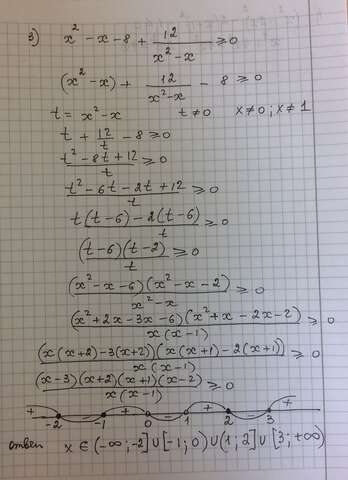 3) x² - x - 8 + 12/(x² - x) ≥ 0
(x² - x) + 12/(x² - x) - 8 ≥ 0
t = x² - x t ≠ 0 x ≠ 0 ; x ≠ 1
t + 12/t - 8 ≥ 0
(t² - 8t + 12)/t ≥ 0
(t² - 6t - 2t + 12)/t ≥ 0
(t(t - 6) - 2(t - 6))/t ≥ 0
((t - 6)(t - 2))/t ≥ 0
((x² - x - 6)(x² - x - 2))/(x² - x) ≥ 0
((x² + 2x - 3x - 6)(x² + x - 2x - 2))/(x(x - 1)) ≥ 0
((x(x + 2) - 3(x + 2))(x(x + 1) - 2(x + 1)))/(x(x - 1)) ≥ 0
((x - 3)(x + 2)(x + 1)(x - 2))/(x(x - 1)) ≥ 0
+ - + - + - +
-2 -1 0 1 2 3
ответ x ∈ (-∞; -2] ∪ [-1; 0) ∪ (1; 2] ∪ [3; +∞)